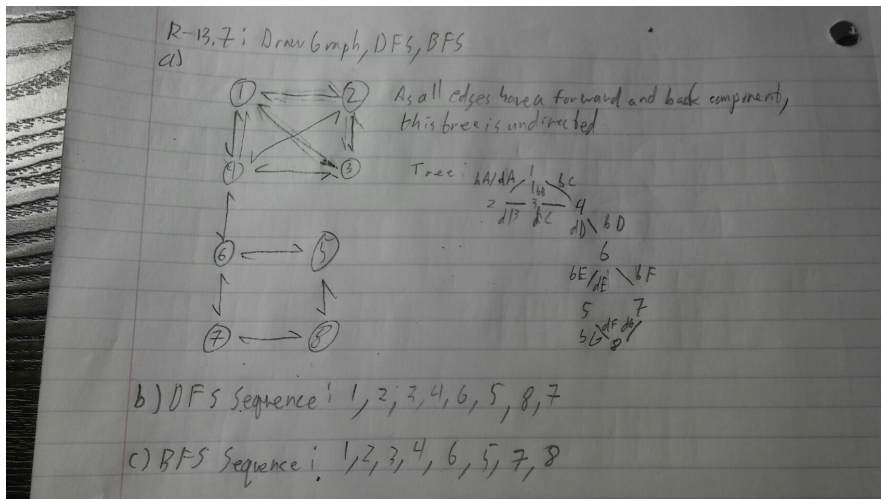 R-13.7: Draw Graph, DFS, BFS
a)
1 2 As all edges have a forward and back component,
this tree is undirected
4 3 Tree:
1
bA/dA bB bC
2 3 4
dB dC dD bD
6 5 6
bE/dE bF
5 7
7 8 bG dF dG
8
b) DFS Sequence: 1, 2, 3, 4, 6, 5, 8, 7
c) BFS Sequence: 1, 2, 3, 4, 6, 5, 7, 8